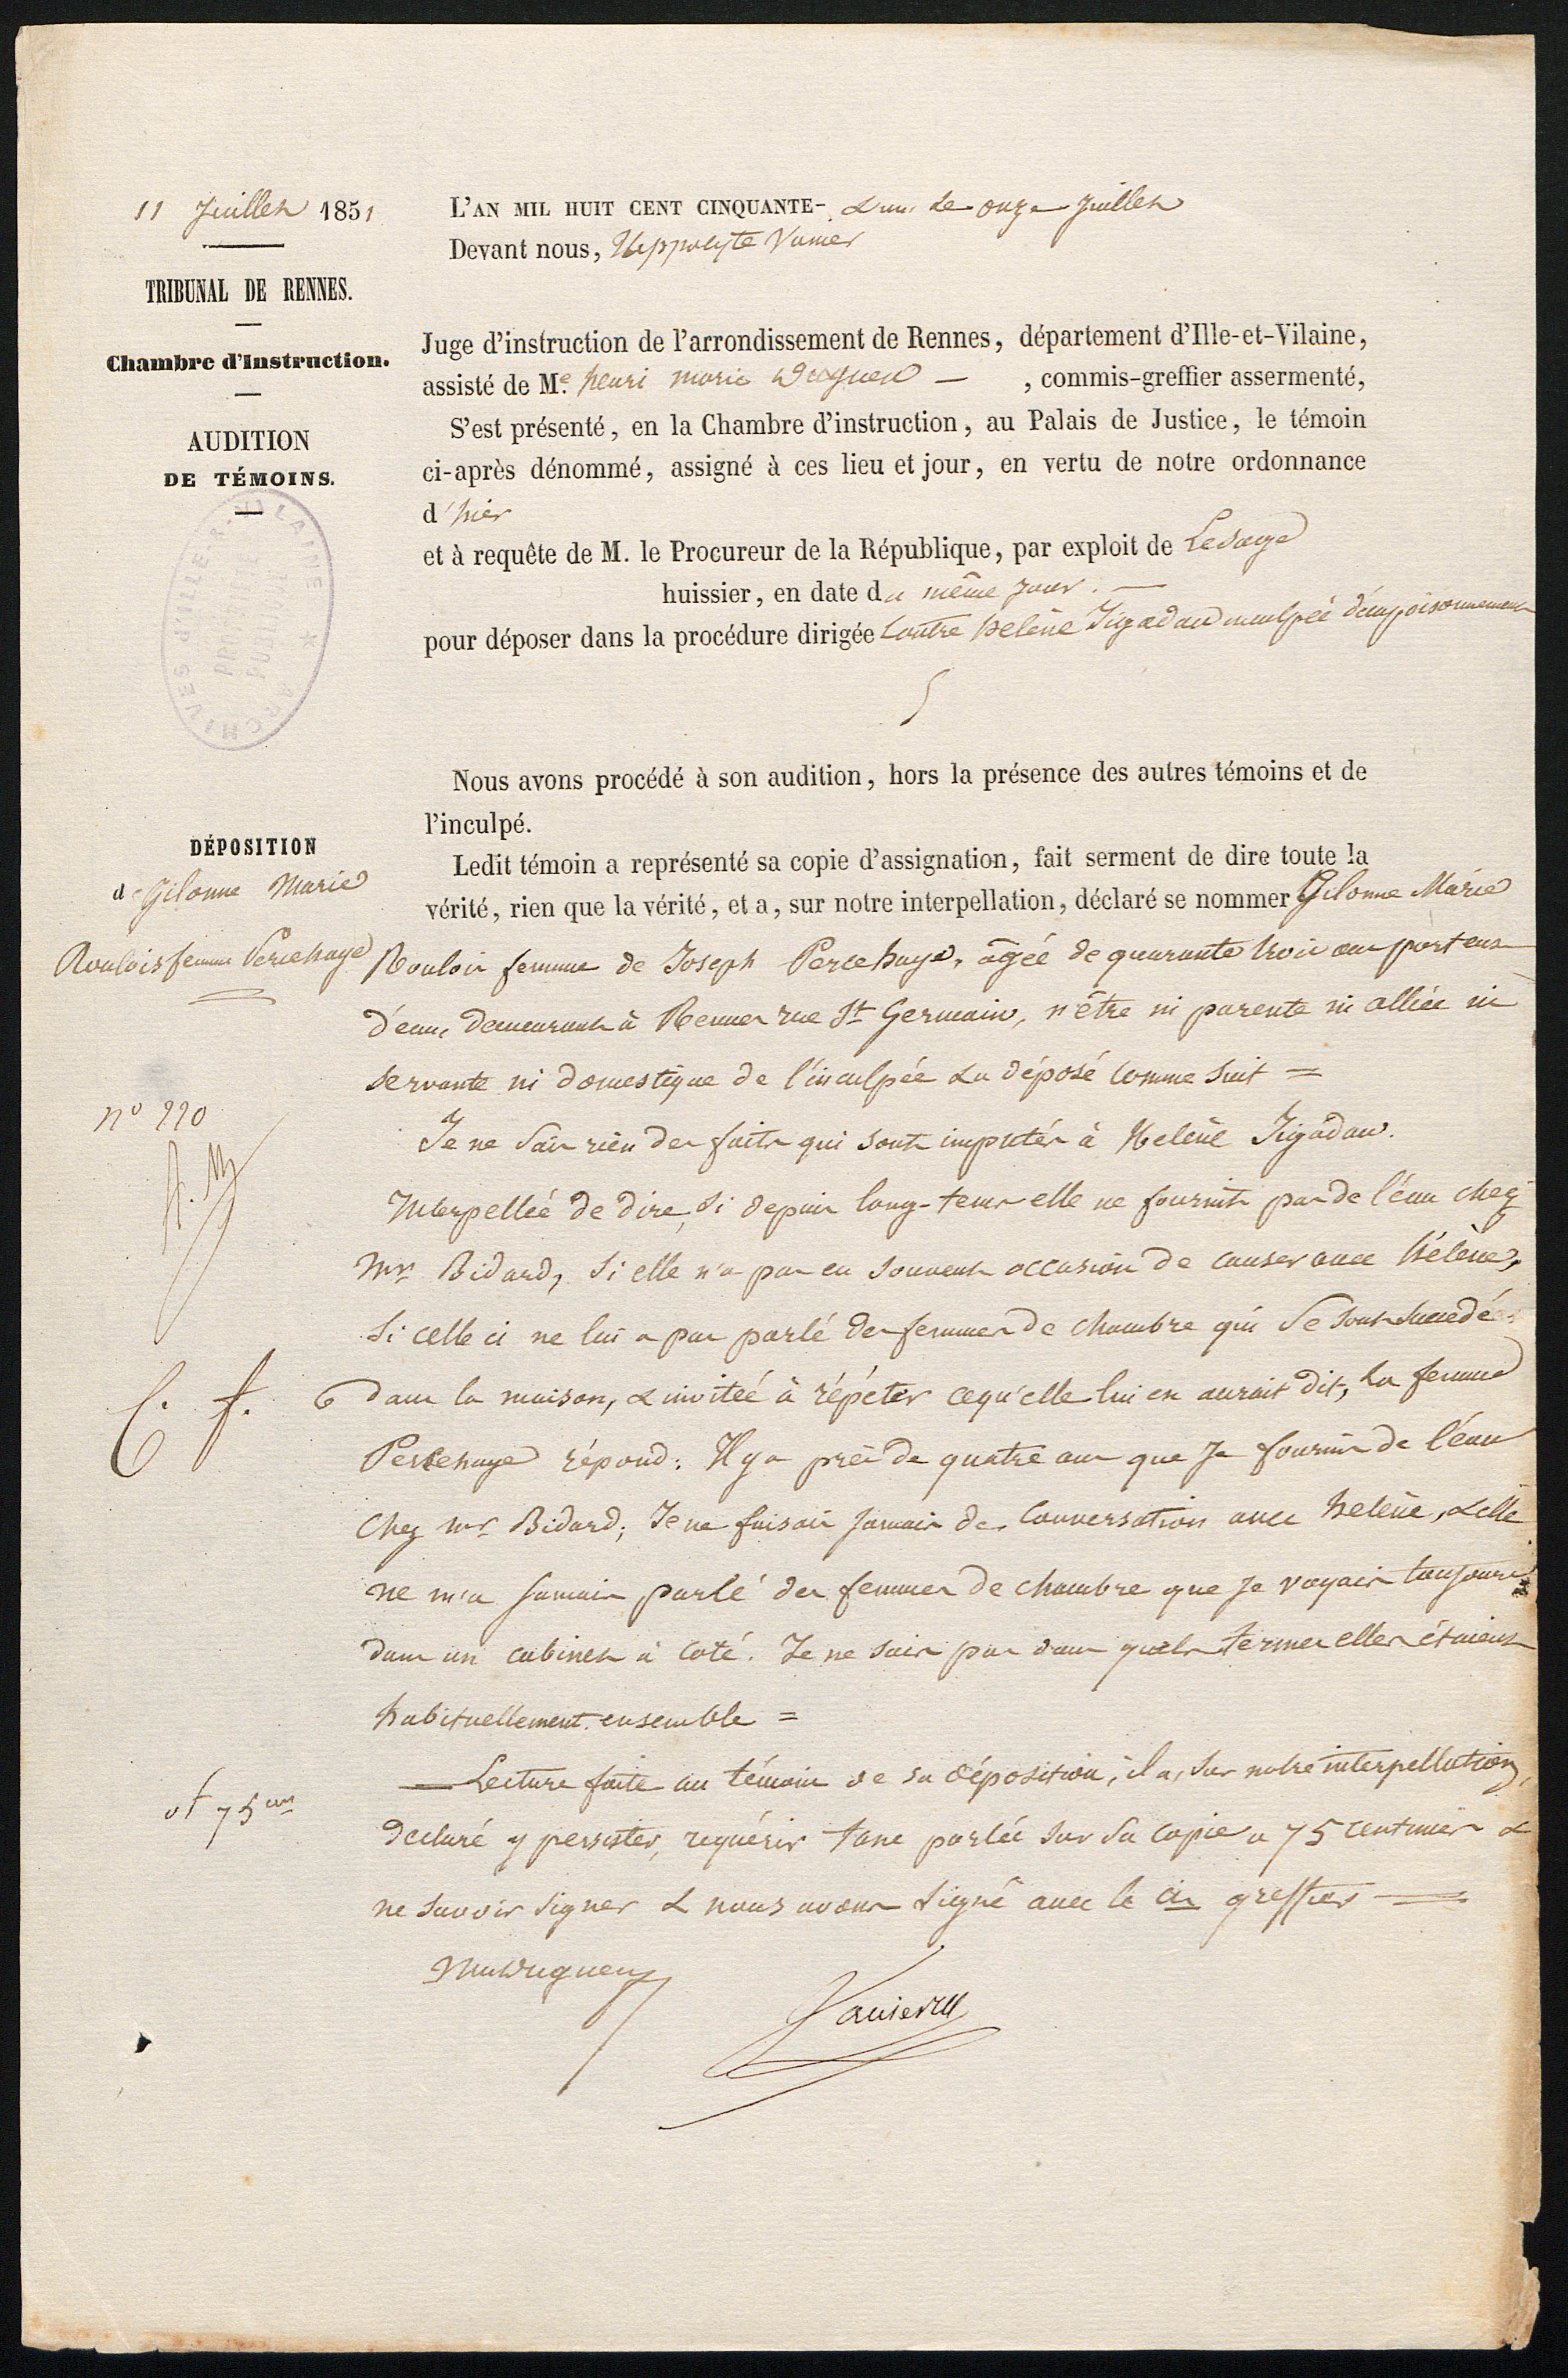 11 Juillet 1851
TRIBUNAL DE RENNES.
Chambre d'Instruction.
AUDITION
DE TÉMOINS.
ARCHIVES d'ILLE-&-VILAINE *
L'AN MIL HUIT CENT CINQUANTE- & un le onze juillet
Devant nous, Hippolyte Vanier
Juge d'instruction de l'arrondissement de Rennes, département d'Ille-et-Vilaine,
assisté de Me. henri marie , commis-greffier assermenté,
S'est présenté, en la Chambre d'instruction, au Palais de Justice, le témoin
ci-après dénommé, assigné à ces lieu et jour, en vertu de notre ordonnance
d'hier
et à requête de M. le Procureur de la République, par exploit de Lesage
huissier, en date du même jour. —
pour déposer dans la procédure dirigée contre heléne Jégadau inculpée d'empoisonnement
Nous avons procédé à son audition, hors la présence des autres témoins et de
l'inculpé.
DÉPOSITION
de Gilonne Marie
Roulois femme Percehaye
Ledit témoin a représenté sa copie d'assignation, fait serment de dire toute la
vérité, rien que la vérité, et a, sur notre interpellation, déclaré se nommer Gilonne Marie
Roulois femme de Joseph Percehaye, âgée de quarante trois ans porteuse
d'eau, demeurant à Rennes rue St Germain, n'être ni parente ni alliée ni
servante ni domestique de l'inculpée & a déposé comme suit =
no 220
Je ne sais rien des faits qui sont imputés à Heléne Jégadau.
Interpellée de dire, si depuis long-tems elle ne fournit pas de l'eau chez
Mr Bidard, si elle n'a pas eu souvent occasion de causer avec hélène,
si celle ci ne lui a pas parlé des femmes de chambre qui se sont succedé
dans la maison, & invitée à répéter cequ'elle lui en aurait dit, la femme
Percehaye répond: Il y a près de quatre ans que je fournis de l'eau
chez mr Bidard; Je ne faisais jamais de conversation avec heléne, & elle
ne m'a jamais parlé des femmes de chambre que je voyais toujours
dans un cabinet à coté. Je ne sais pas dans quels termes elles étaient
habituellement ensemble =
— Lecture faite au témoin de sa déposition, il a, sur notre interpellation,
declaré y persister, requérir taxe portée sur sa copie a 75 centimes &
ne savoir signer & nous avons signé avec le cis greffier —
of 75 cms
Vanier